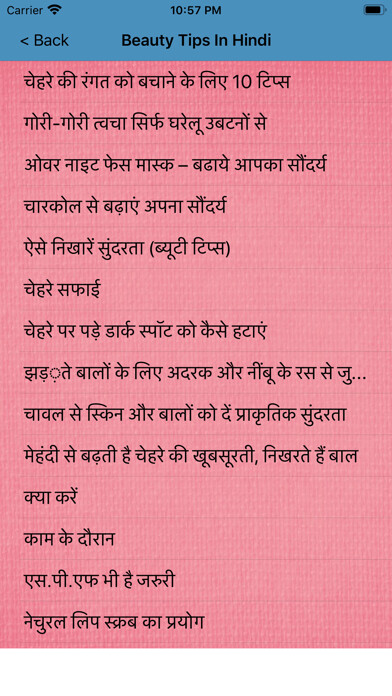 Carrier 10:57 PM
< Back Beauty Tips In Hindi
चेहरे की रंगत को बचाने के लिए 10 टिप्स
गोरी-गोरी त्वचा सिर्फ घरेलू उबटनों से
ओवर नाइट फेस मास्क – बढाये आपका सौंदर्य
चारकोल से बढ़ाएं अपना सौंदर्य
ऐसे निखारें सुंदरता (ब्यूटी टिप्स)
चेहरे सफाई
चेहरे पर पड़े डार्क स्पॉट को कैसे हटाएं
झड़़ते बालों के लिए अदरक और नींबू के रस से जु...
चावल से स्किन और बालों को दें प्राकृतिक सुंदरता
मेहंदी से बढ़ती है चेहरे की खूबसूरती, निखरते हैं बाल
क्या करें
काम के दौरान
एस.पी.एफ भी है जरुरी
नेचुरल लिप स्क्रब का प्रयोग